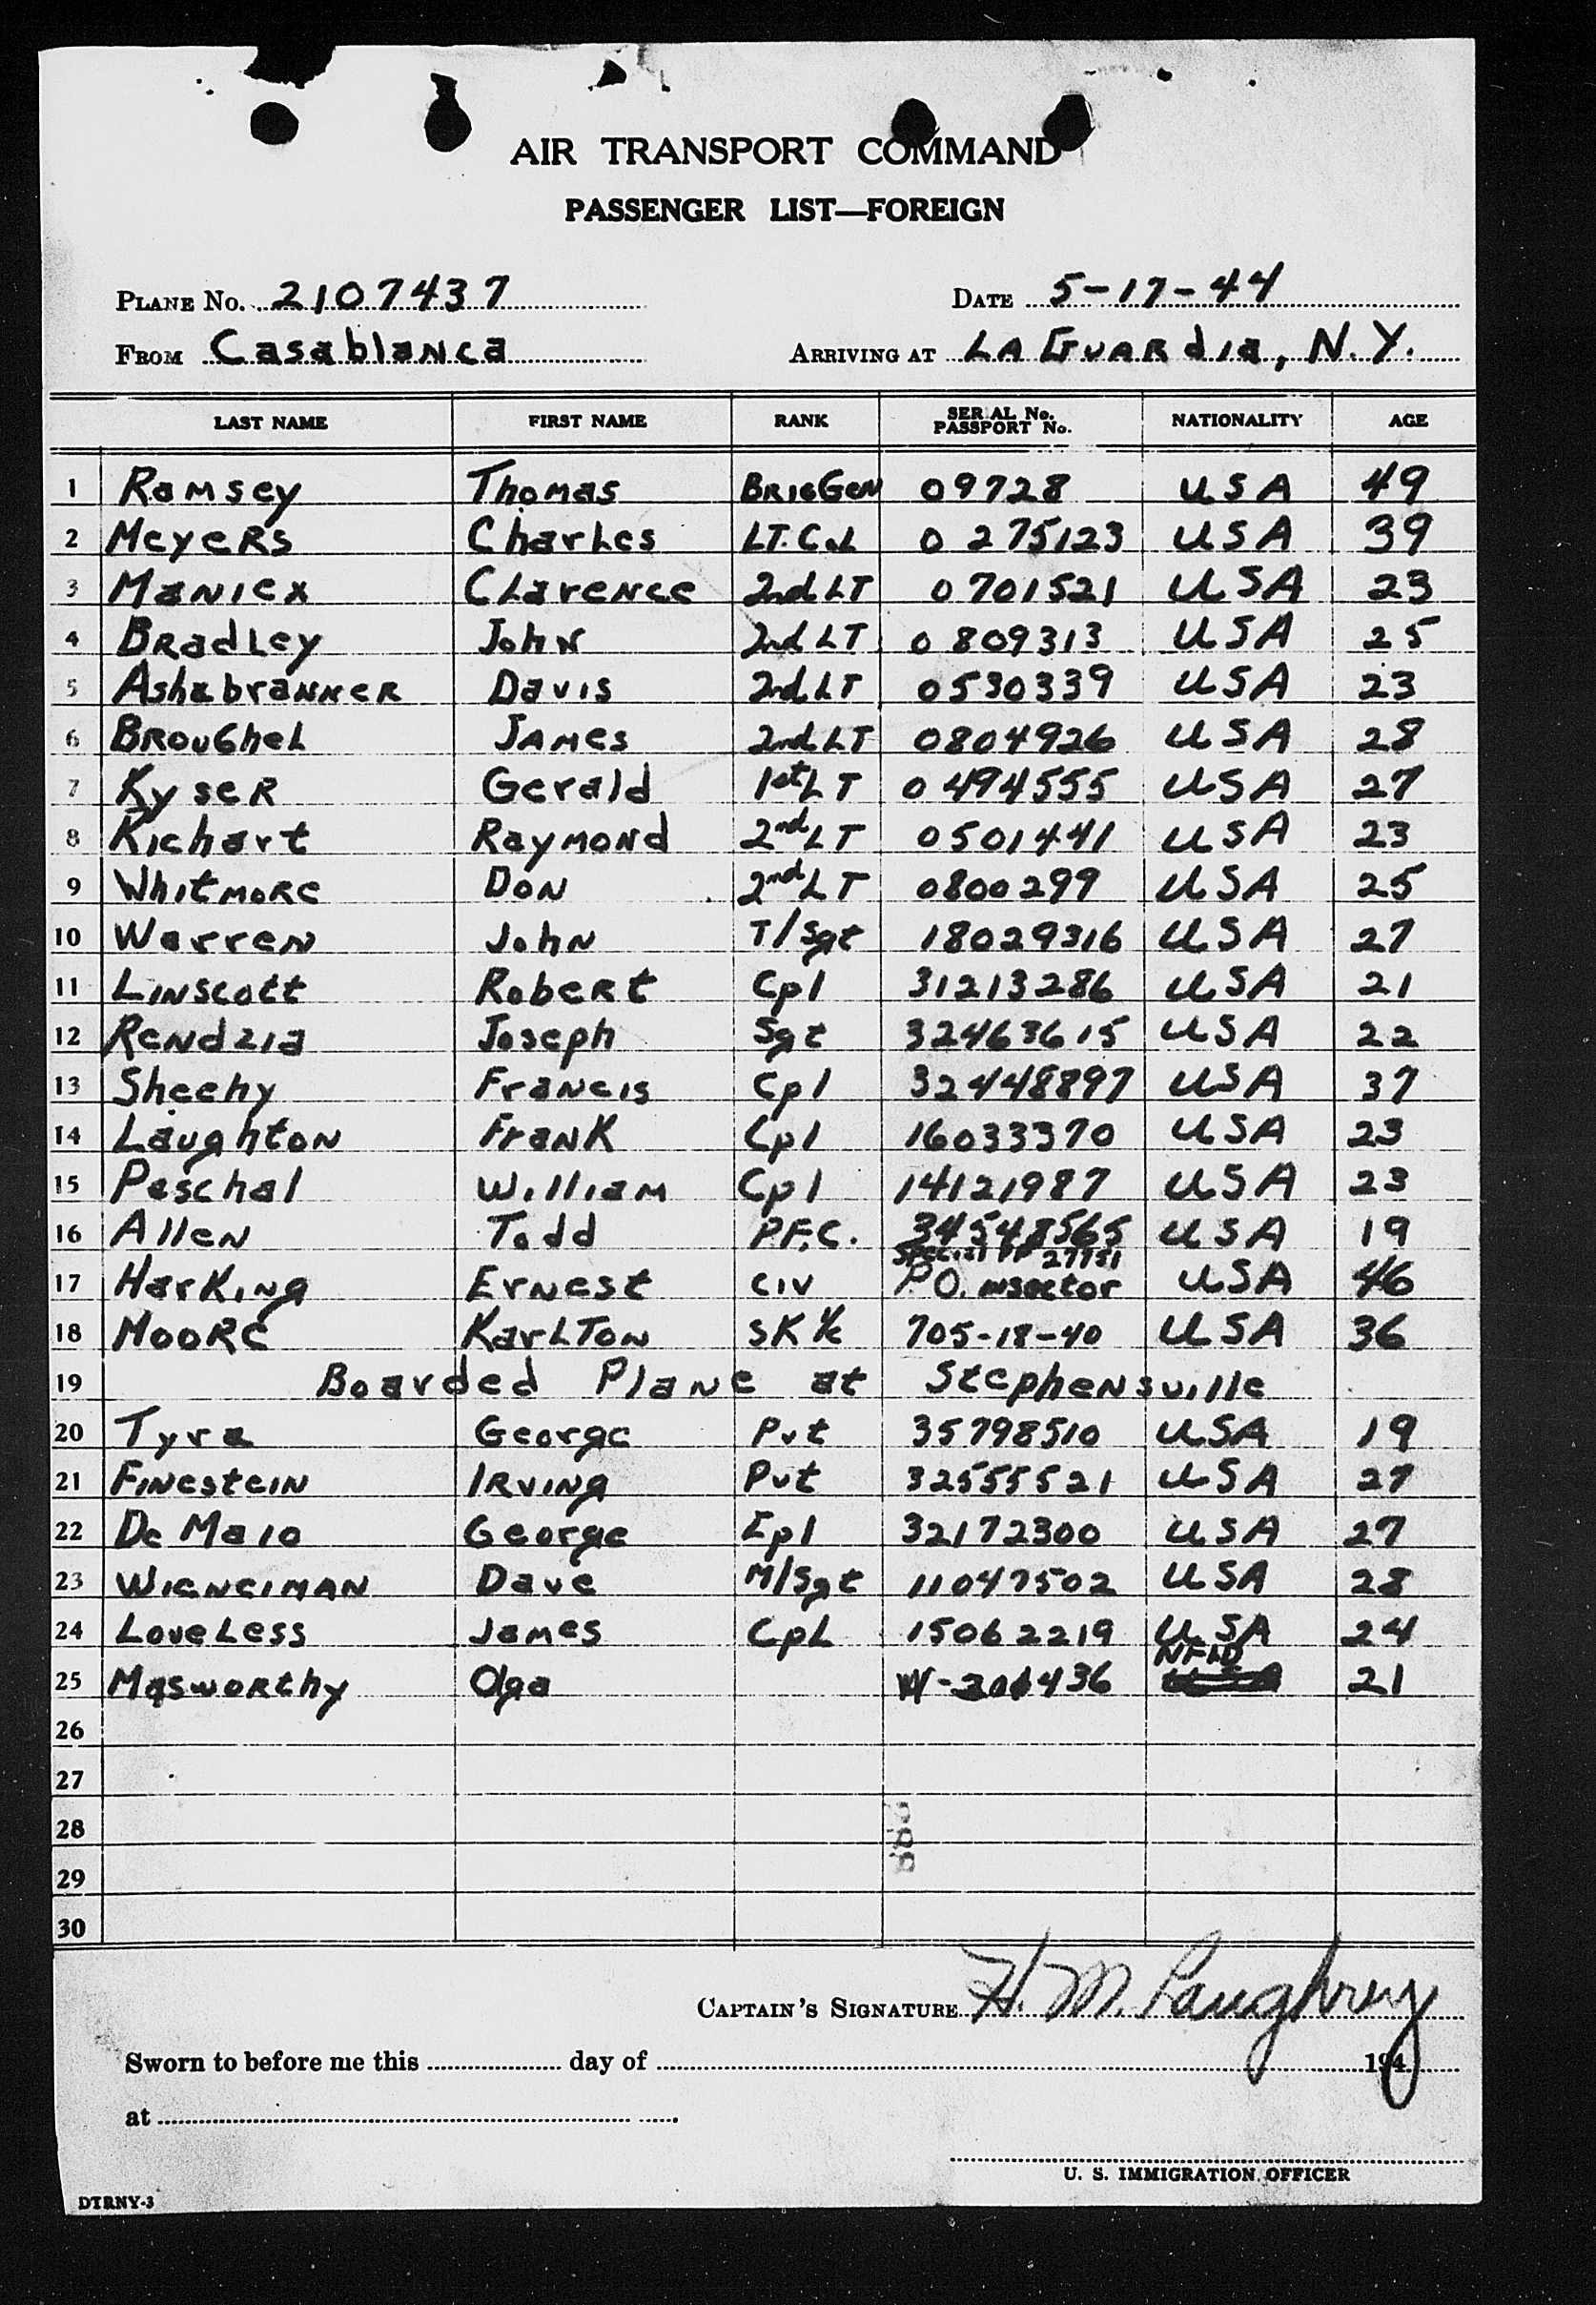 AIR TRANSPORT COMMAND
PASSENGER LIST—FOREIGN
PLANE No. 2107437 DATE 5-17-44
FROM Casablanca ARRIVING AT LA GUARdia, N.Y.
LAST NAME FIRST NAME RANK SERIAL No. PASSPORT No. NATIONALITY AGE
1 Ramsey Thomas BRIGGEN 09728 USA 49
2 MeyeRs CharLes LT. Col 0 275123 USA 39
3 Maniex CLarence 2nd LT 0701521 USA 23
4 BRadLey John 2nd LT 0 809313 USA 25
5 AshabranneR Davis 2nd LT 0530339 USA 23
6 BRouGheL James 2nd LT 0804926 USA 28
7 KyseR Gerald 1st LT 0 494555 USA 27
8 Kichart Raymond 2nd LT 0501441 USA 23
9 Whitmore Don 2nd LT 0800299 USA 25
10 Warren John T/Sgt 18029316 USA 27
11 Linscott RobeRt Cpl 31213286 USA 21
12 Rendzia Joseph Sgt 32463615 USA 22
13 Sheehy Francis Cpl 32448897 USA 37
14 Laughton Frank Cpl 16033370 USA 23
15 Paschal William Cpl 14121987 USA 23
16 Allen Todd P.F.C. 34548565 USA 19
Special PP 27751
17 HarKing Ernest civ P.O. inspector USA 46
18 Moore KarLTon SK 1/c 705-18-40 USA 36
19 Boarded Plane at Stephensville
20 Tyra George Pvt 35798510 USA 19
21 Finestein IRving Pvt 32555521 USA 27
22 De Maio George Cpl 32172300 USA 27
23 Wieneiman Dave M/Sgt 11047502 USA 28
24 LoveLess James CpL 15062219 USA 24
NFLD
25 MasWoRthy Olga W-201436 21
26
27
28
29
30
CAPTAIN'S SIGNATURE H. M. Laughrey
Sworn to before me this day of 194
at
U. S. IMMIGRATION OFFICER
DTRNY-3